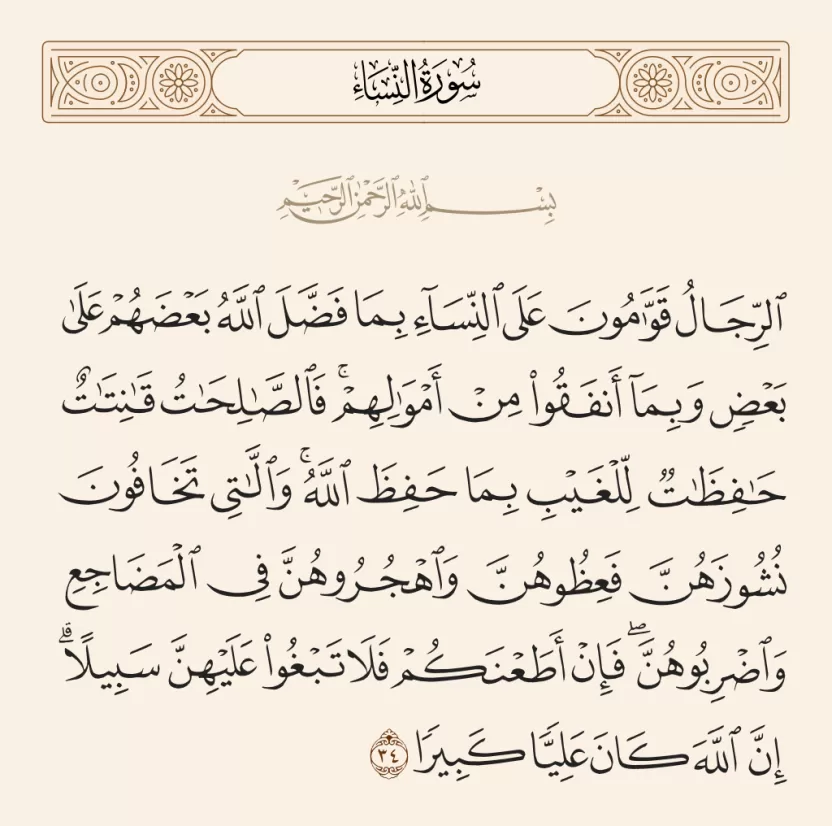 سُورَةُ النِّسَاءِ
بِسْمِ ٱللَّهِ ٱلرَّحْمَٰنِ ٱلرَّحِيمِ
ٱلرِّجَالُ قَوَّٰمُونَ عَلَى ٱلنِّسَآءِ بِمَا فَضَّلَ ٱللَّهُ بَعْضَهُمْ عَلَىٰ
بَعْضٍ وَبِمَآ أَنفَقُوا۟ مِنْ أَمْوَٰلِهِمْ ۚ فَٱلصَّـٰلِحَـٰتُ قَـٰنِتَـٰتٌ
حَـٰفِظَـٰتٌ لِّلْغَيْبِ بِمَا حَفِظَ ٱللَّهُ ۚ وَٱلَّـٰتِى تَخَافُونَ
نُشُوزَهُنَّ فَعِظُوهُنَّ وَٱهْجُرُوهُنَّ فِى ٱلْمَضَاجِعِ
وَٱضْرِبُوهُنَّ ۖ فَإِنْ أَطَعْنَكُمْ فَلَا تَبْغُوا۟ عَلَيْهِنَّ سَبِيلًا ۗ
إِنَّ ٱللَّهَ كَانَ عَلِيًّا كَبِيرًا ٣٤